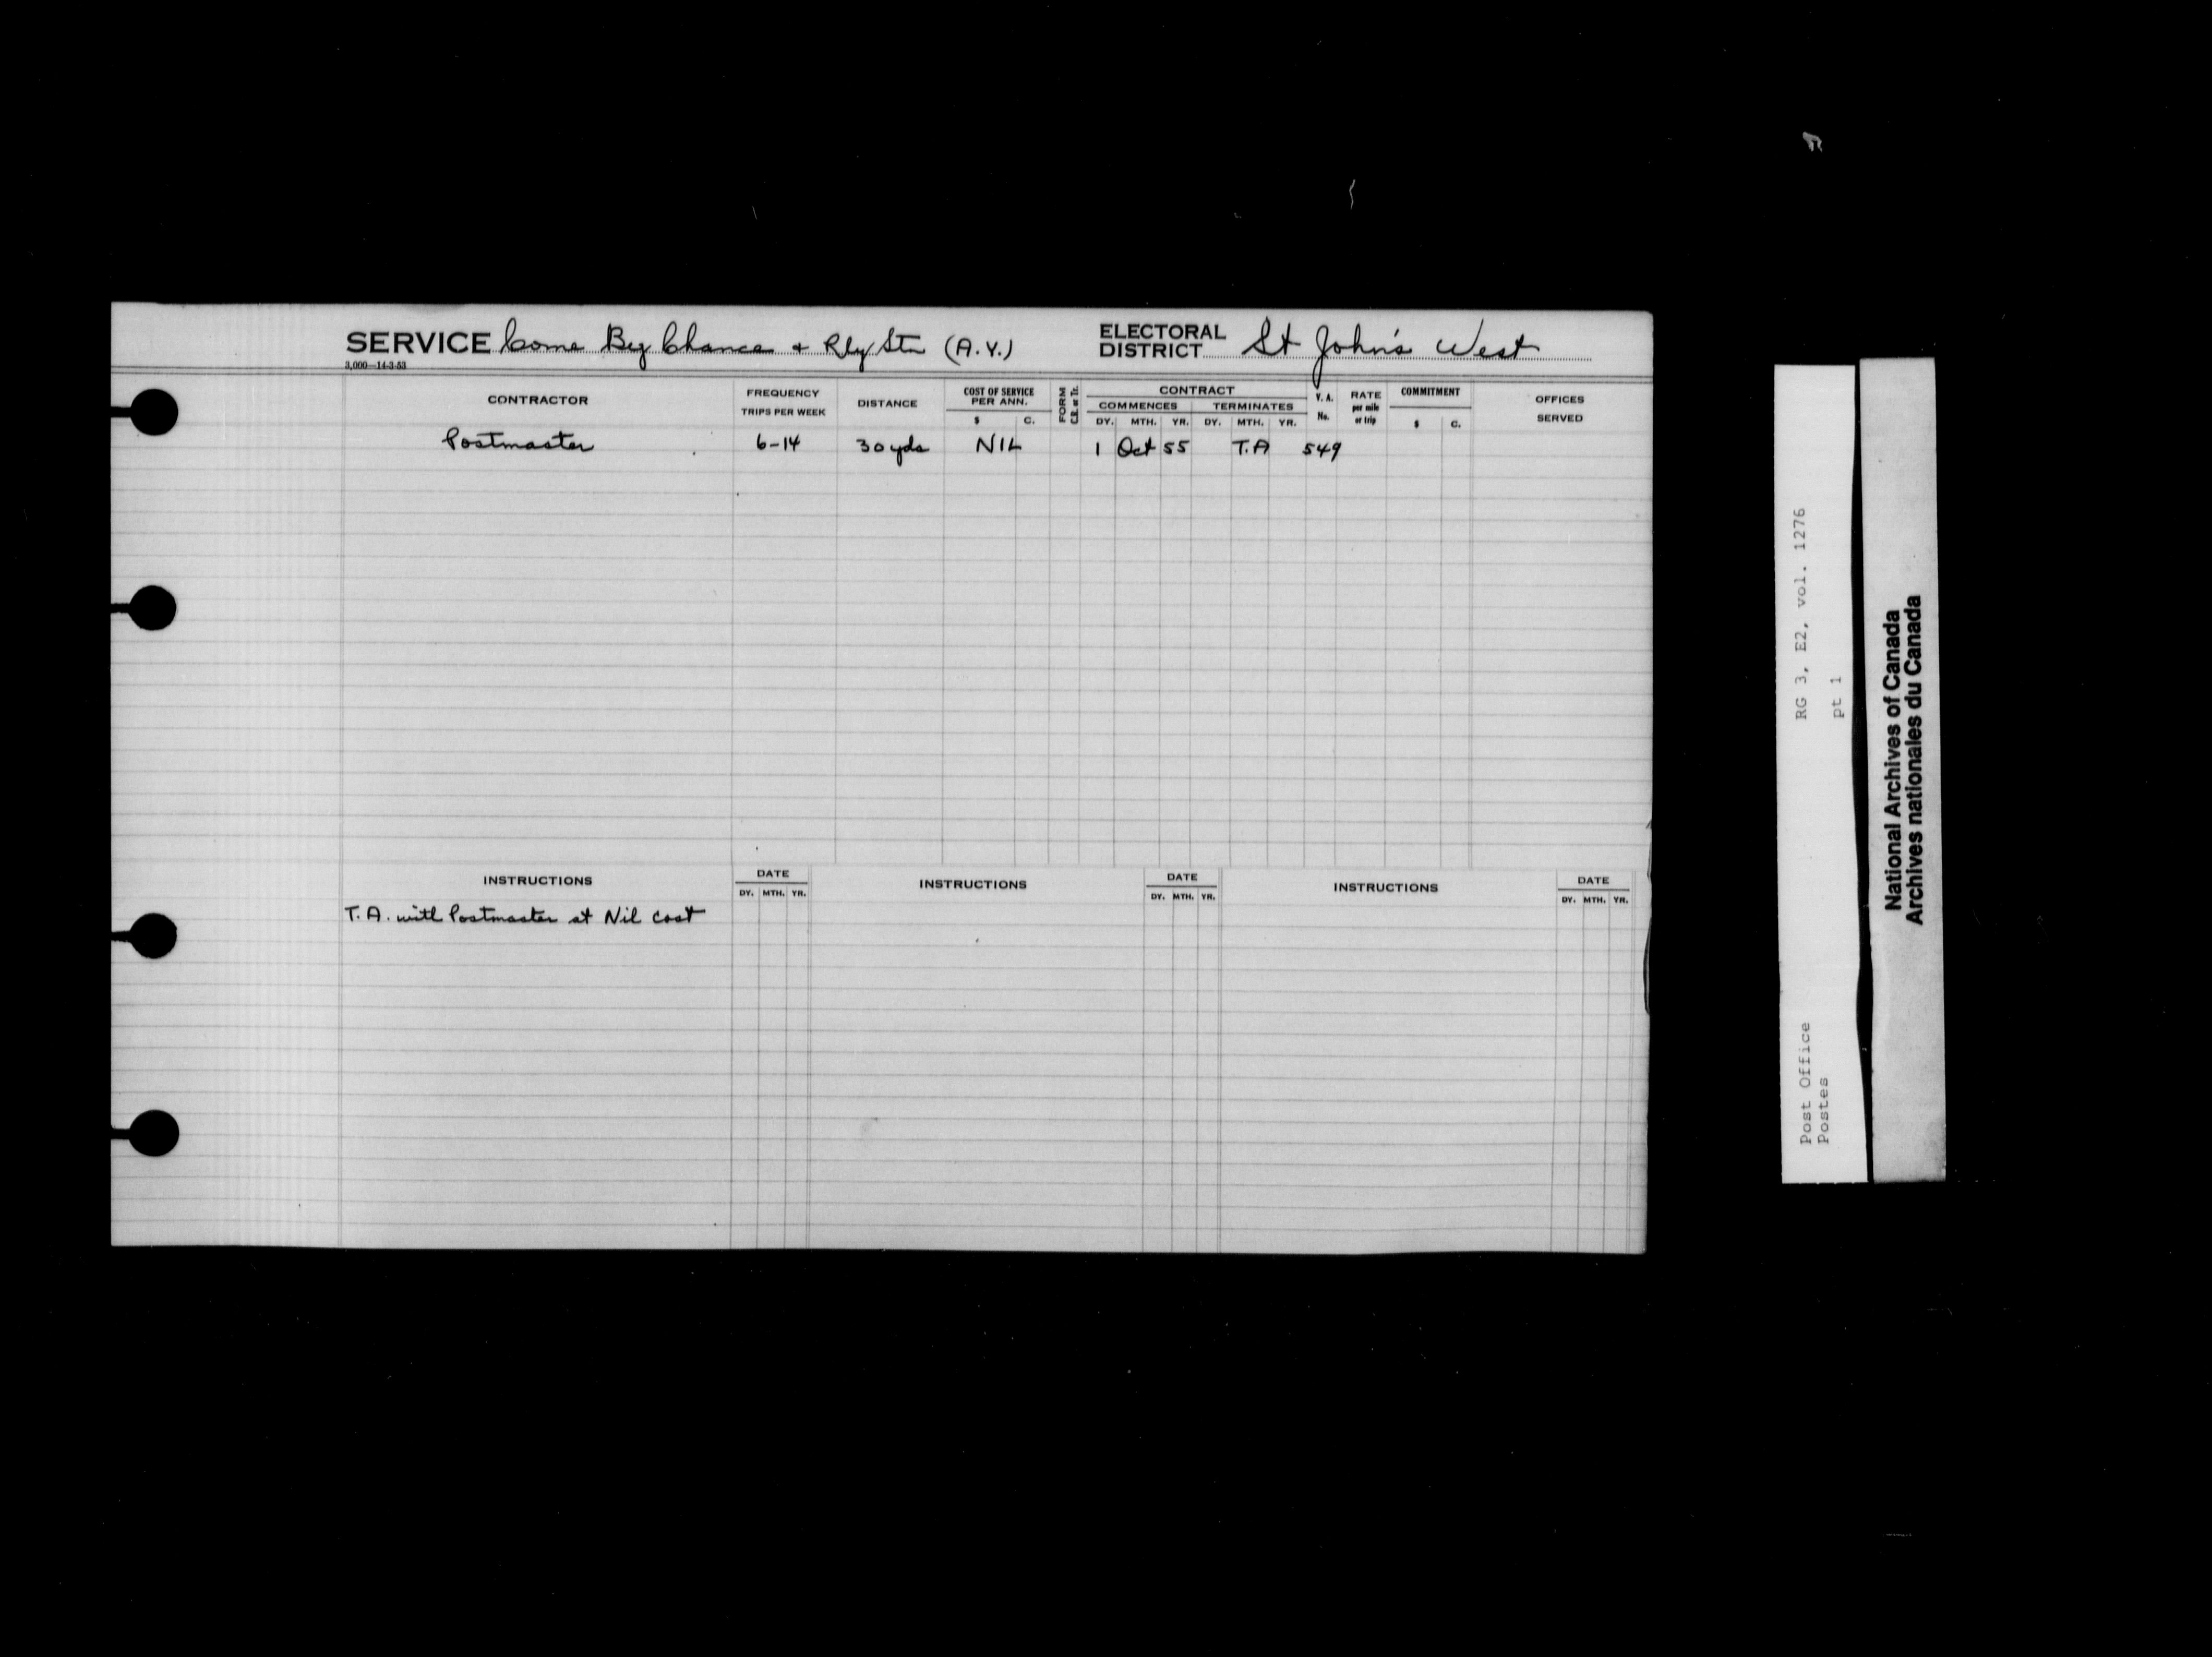 SERVICE Come By Chance & Rly Stn (A.Y.)
3,000—14-3-53
ELECTORAL
DISTRICT St John's West
CONTRACTOR
FREQUENCY
TRIPS PER WEEK
DISTANCE
COST OF SERVICE
PER ANN.
$ C.
FORM
C.B. or Tr.
CONTRACT
COMMENCES TERMINATES
DY. MTH. YR. DY. MTH. YR.
V. A.
No.
RATE
per mile
or trip
COMMITMENT
$ C.
OFFICES
SERVED
Postmaster 6-14 30 yds NIL 1 Oct 55 T.A 549
INSTRUCTIONS DATE INSTRUCTIONS DATE INSTRUCTIONS DATE
DY. MTH. YR. DY. MTH. YR. DY. MTH. YR.
T.A. with Postmaster at Nil cost
RG 3, E2, vol. 1276
pt 1
Post Office
Postes
National Archives of Canada
Archives nationales du Canada